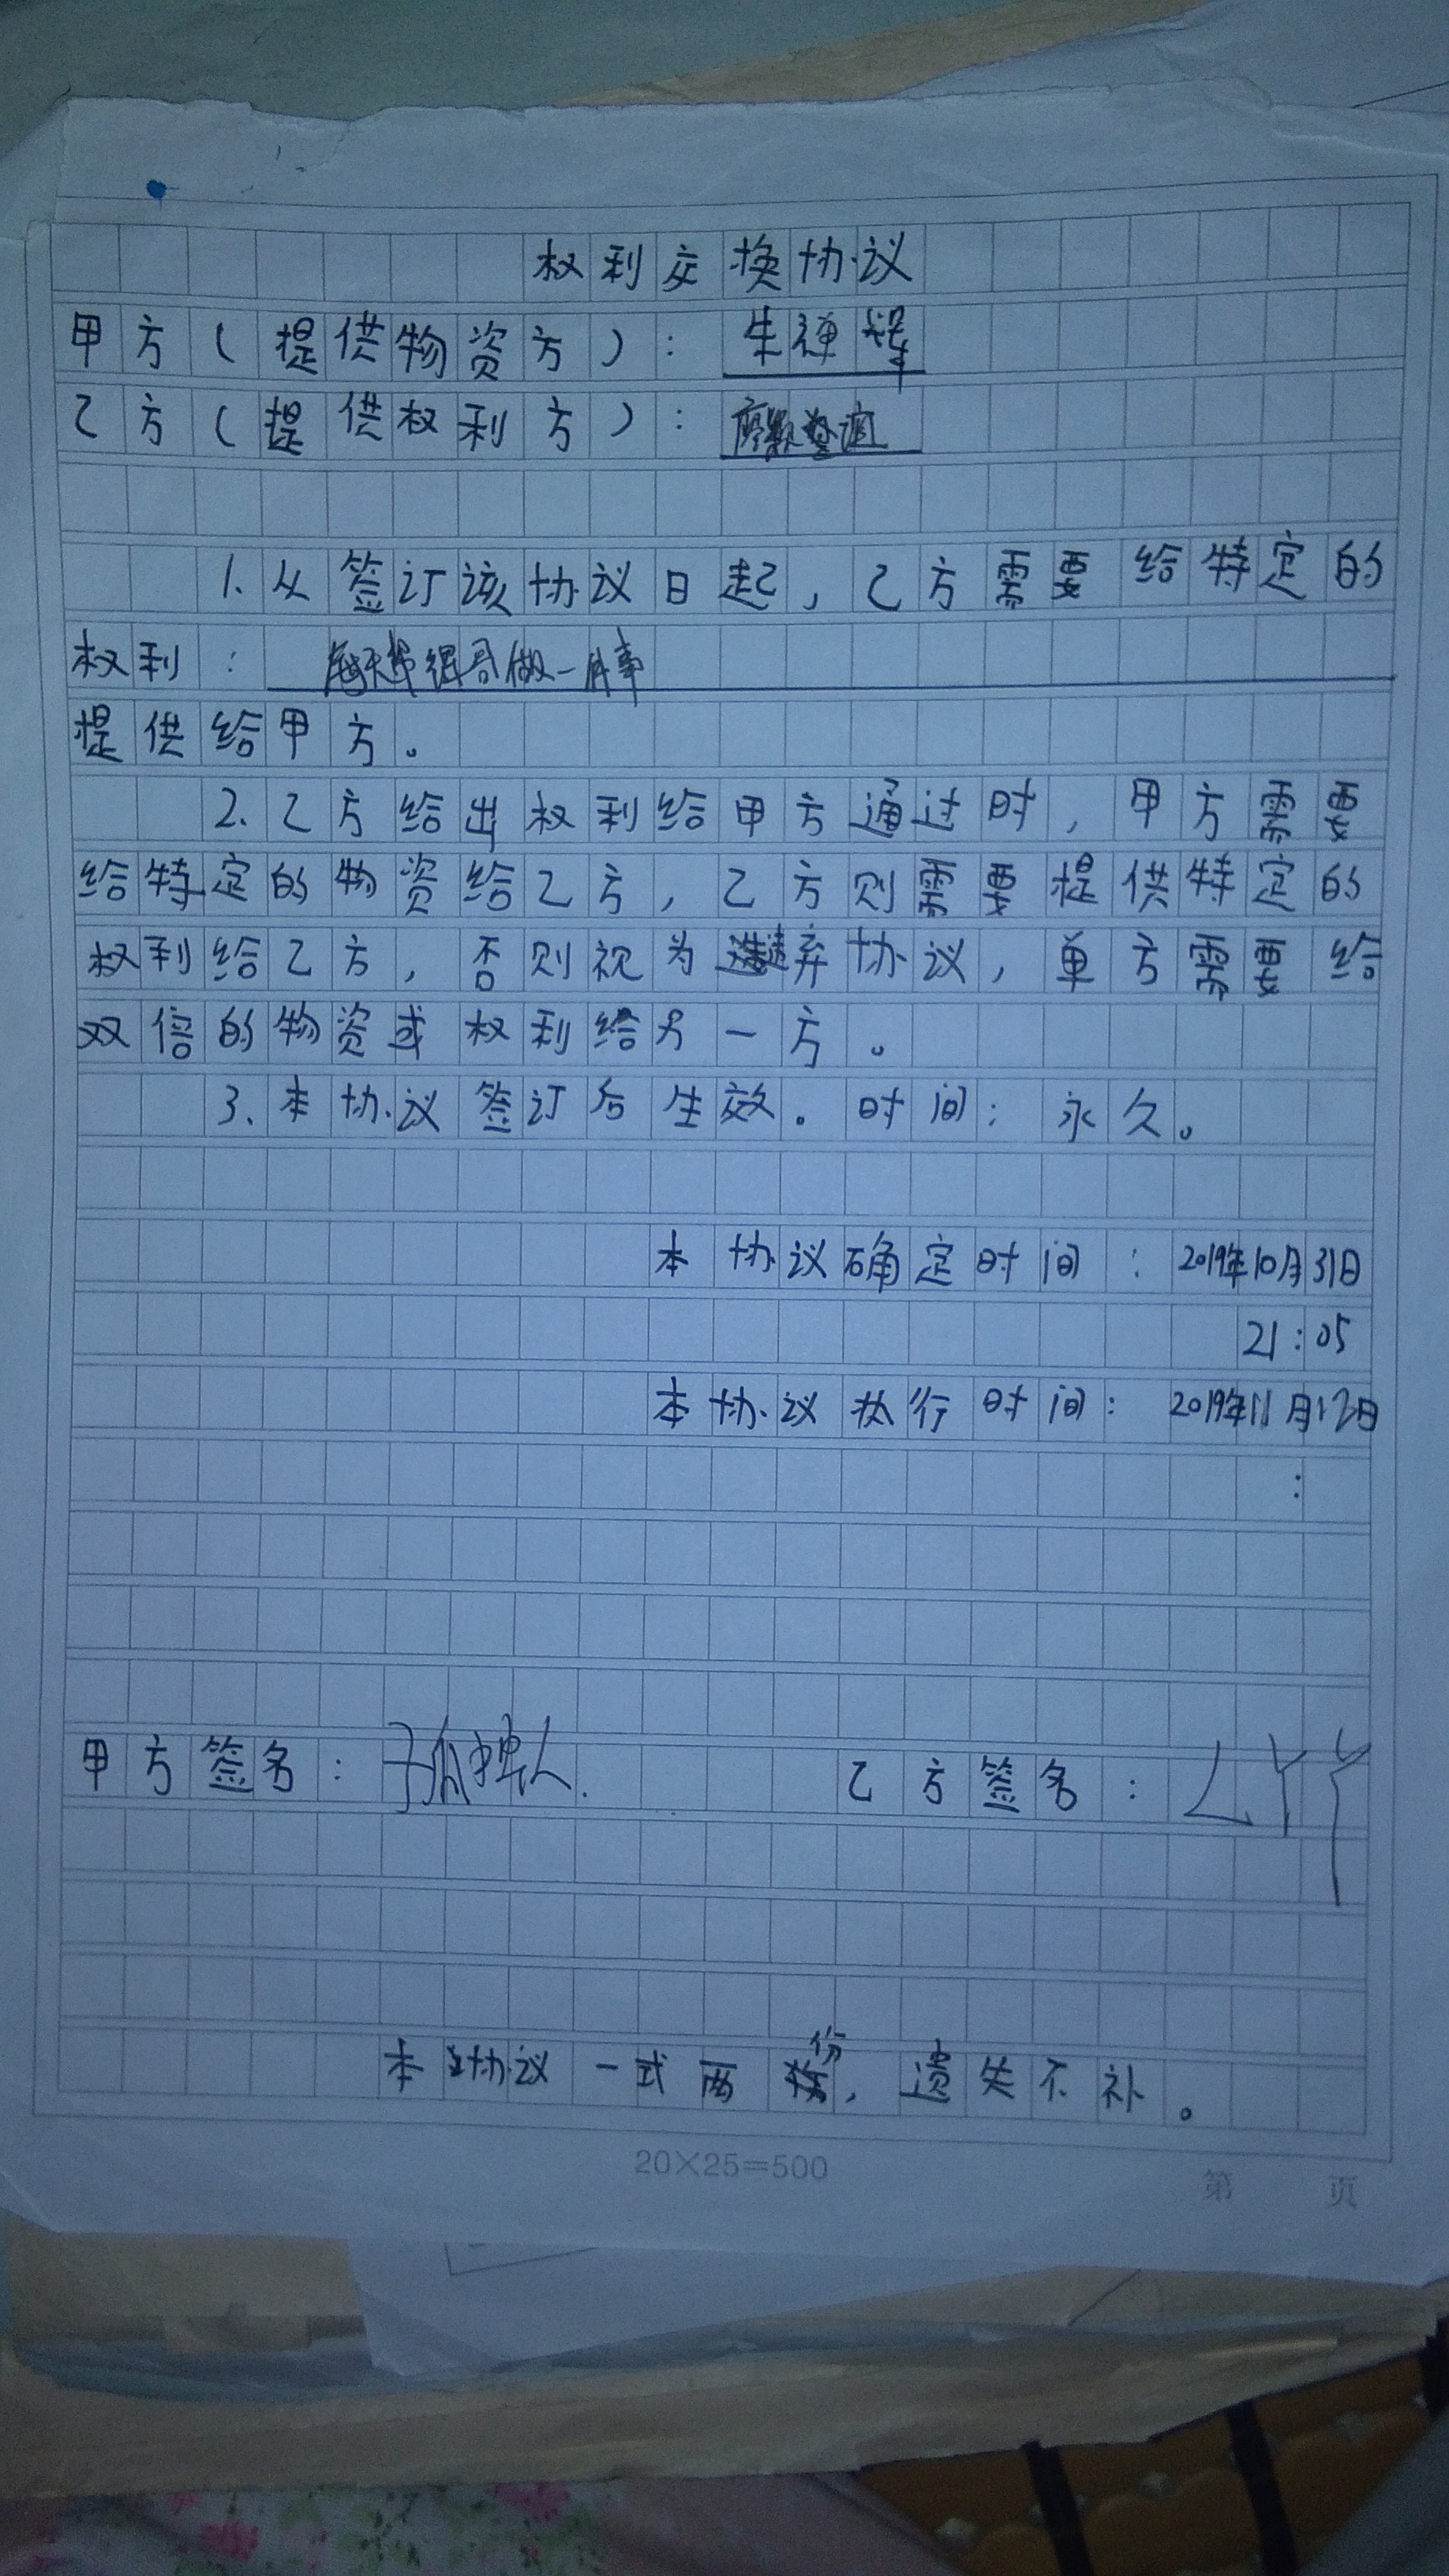 权利交换协议
甲方(提供物资方):朱禅
乙方(提供权利方):
1.从签订该协议日起,乙方需要给特定的
权利:每天帮得哥做一件事
提供给甲方。
2.乙方给出权利给甲方通过时,甲方需要
给特定的物资给乙方,乙方则需要提供特定的
权利给乙方,否则视为弃协议,单方需要给
双倍的物资或权利给另一方。
3.本协议签订后生效。时间:永久。
本协议确定时间:2019年10月31日
21:05
本协议执行时间:2019年11月12日
:
甲方签名:孤独人. 乙方签名:
本协议一式两份,遗失不补。
20×25=500
第 页